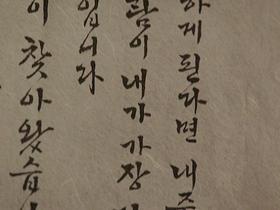 하게 된다면 내 주
람이 내가 가장
입니다
이 찾아왔습니